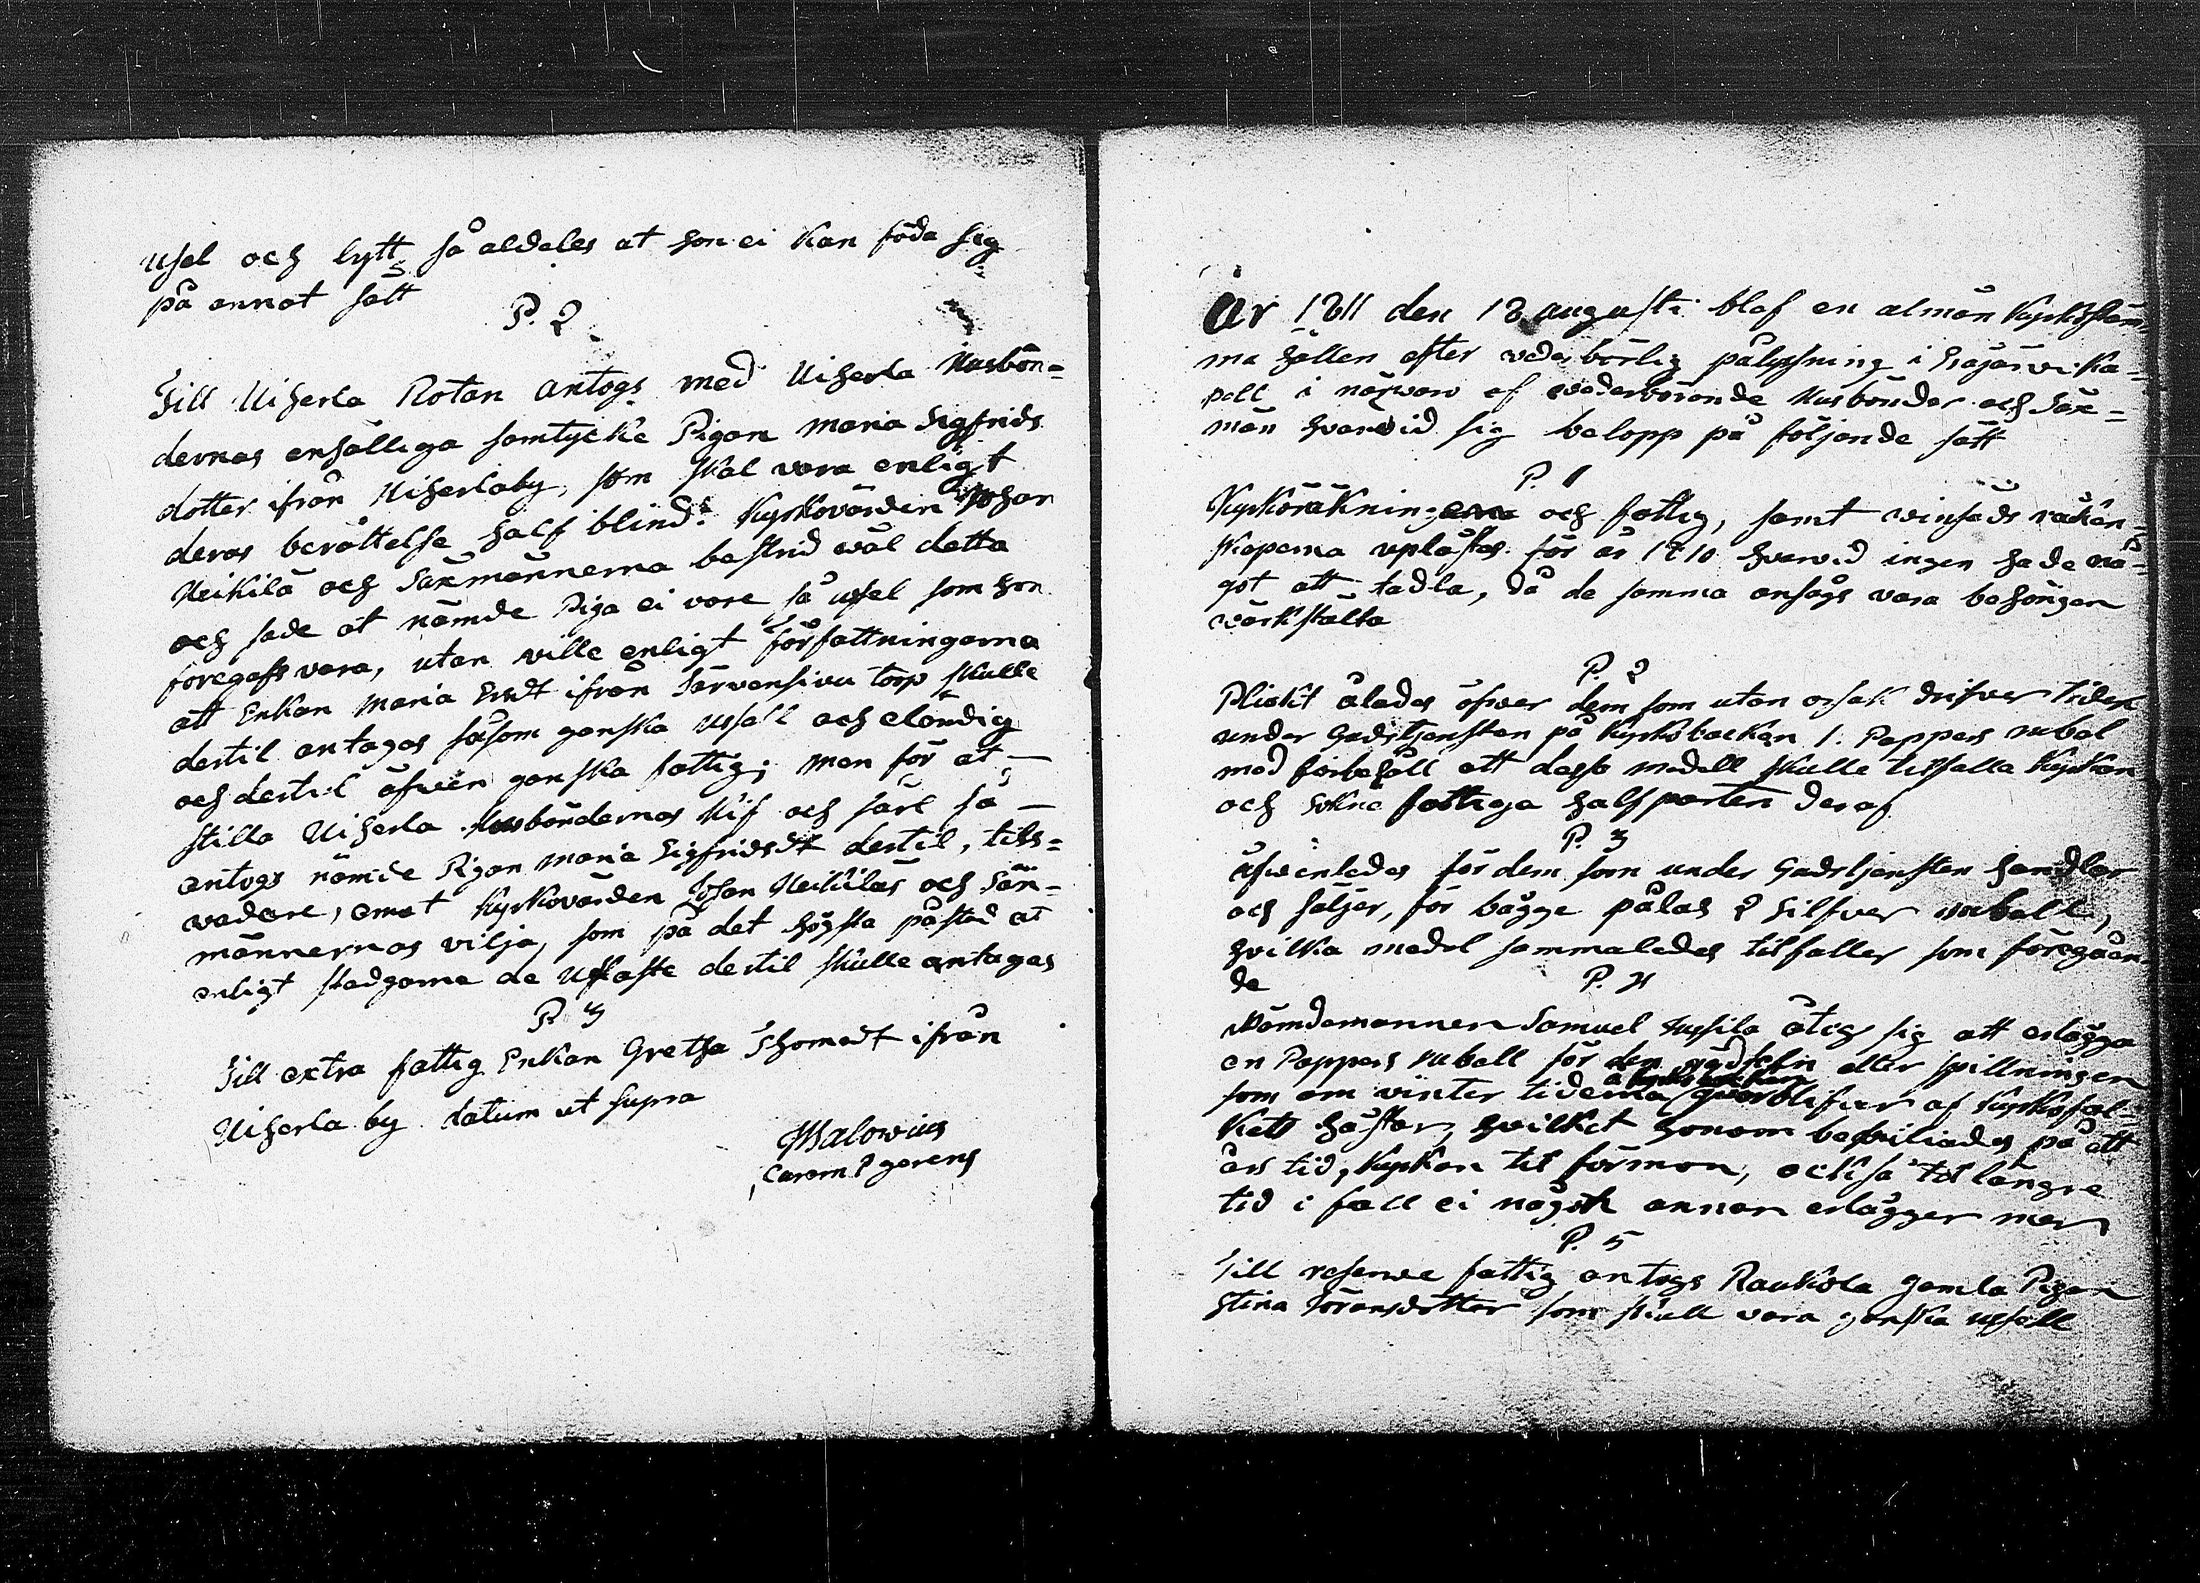 usel och lytt, så aldeles at hon ei kan föda sig
på annat sätt
P. 2
Till Uiherla Rotan antogs med Uiherla Husbön=
dernas enhälliga samtycke Pigan Maria Sigfrids
dotter ifrån Uiherlaby, som skal vara enligt
deras berättelse half blind. Kyrkovärden Johan
Heikilä och Säxmännerna bestrid wäl detta
och sade at nämde Piga ei vore så ussel som hon
föregafs vara, utan ville enligt författningarna
att Enkan Maria Ersdt ifrån Särvensivu torp skulle
dertil antagas såsom ganska ussall och elendig
och dertil äfwen ganska fattig; men för at
stilla Uiherla Husböndernas Kif och sårl så
antogs nämde Pigan Maria Sigfridsdt dertil, tills=
vadare, emot Kyrkovärden Johan Heikiläs och Säx=
männernas vilja, som på det högsta påstod at
enligt stadgarna de Uslaste dertil skulle antagas
P. 3
Till extra fattig Enkan Gretha Thomedt ifrån
Uiherla by. datum ut supra
Malowius
Sacram? gerens
År 1811 den 18 augusti blef en almän Kyrkostäm=
ma hållen efter wederbörlig pålysning i Kapa=
pell i närwaro af wederbörande Husbönder och Säx=
män hvarvid sig belopp på följande sätt
P. 1
Kyrkoräkningarna och fattig, samt winhäds räken=
skaperna uplästes för år 1810 hvarvid ingen hade nå=
got att tadla, då de samma ansågs vara behörigen
wärkstälta
P. 2
Plickt ålades öfwer dem som utan orsak drifver tiden
under Gudstjensten på Kyrkobacken 1. Pappers rubel
med förbehåll att dessa medell skulle tilfalla Kyrkan
och Sokne fattiga halfparten deraf
P. 3
Äfwenledes för dem som under Gudstjensten handlar
och säljer, för bägge pålas 2 Silfver rubell,
hvilka medel sammaledes tilfaller som föregåen=
de
P. 4
Nämdemannen Samuel Jussila åtog sig att erlägga
en Pappers rubell för den gödseln eller spillningen
som om vinter tiderna å kyrkobacken qvarblifver af Kyrkofol=
kets hästar, hvilket honom bewiliades på ett
års tid, Kyrkan til förmon, också til längre
tid i fall ei någon annan erlägger mer
P. 5
Till reserve fattig antogs Raukola gamla Pigan
Stina Göransdotter som skall vara ganska ussell